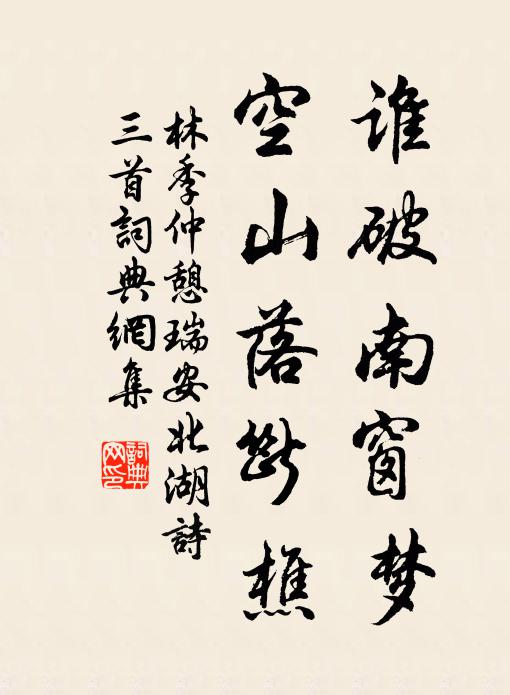 谁破南窗梦
空山落断樵
林季仲憩瑞安北湖詩
三首詞典網集
詞典网印